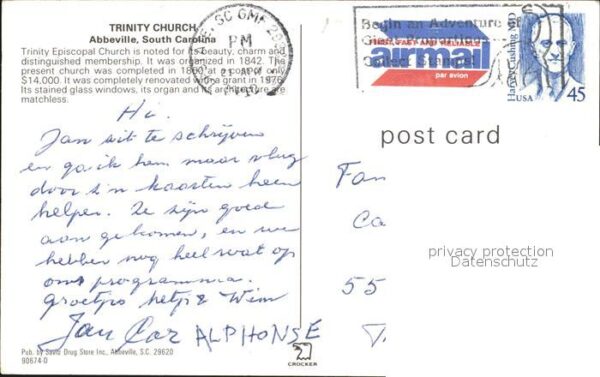 TRINITY CHURCH
Abbeville, South Carolina
Trinity Episcopal Church is noted for its beauty, charm and
distinguished membership. It was organized in 1842. The
present church was completed in 1860 at a cost of only
$14,000. It was completely renovated with a grant in 1976.
Its stained glass windows, its organ and its architecture are
matchless.
SC GMF 296
PM
21 APR
Begin an Adventure of
Collect Stamps!
FIRST, FAST AND RELIABLE
airmail
par avion
Harvey Cushing MD
USA 45
post card
Hi.
Jan zit te schrijven
en ga ik hem maar vlug
door z'n kaarten heen
helpen. Ze zijn goed
aan gekomen, en we
hebben nog heel wat op
ons programma.
groetjes & Wim
Jan Cor ALPHONSE
Fan
Ca
55
privacy protection
Datenschutz
Pub. by Savid Drug Store Inc., Abbeville, S.C. 29620
90674-D
CROCKER